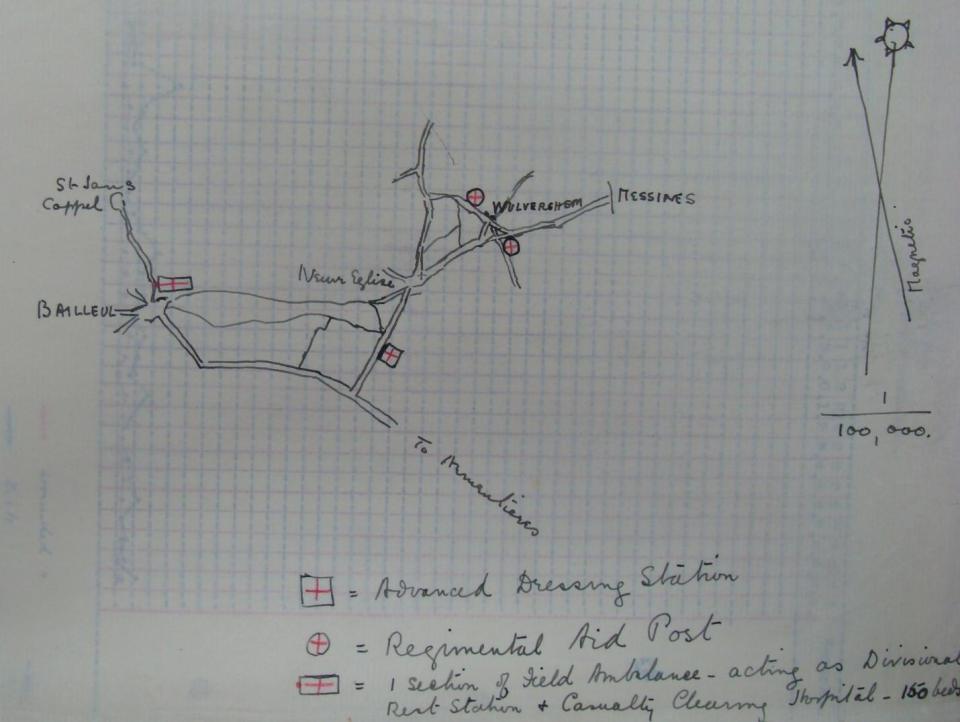 St Jan's
Cappel
MESSINES
WULVERGHEM
Neuve Eglise
BAILLEUL
Magnetic
1
100,000.
To Armentières
= Advanced Dressing Station
= Regimental Aid Post
= 1 section of Field Ambulance - acting as Divisional
Rest Station & Casualty Clearing Hospital - 150 beds